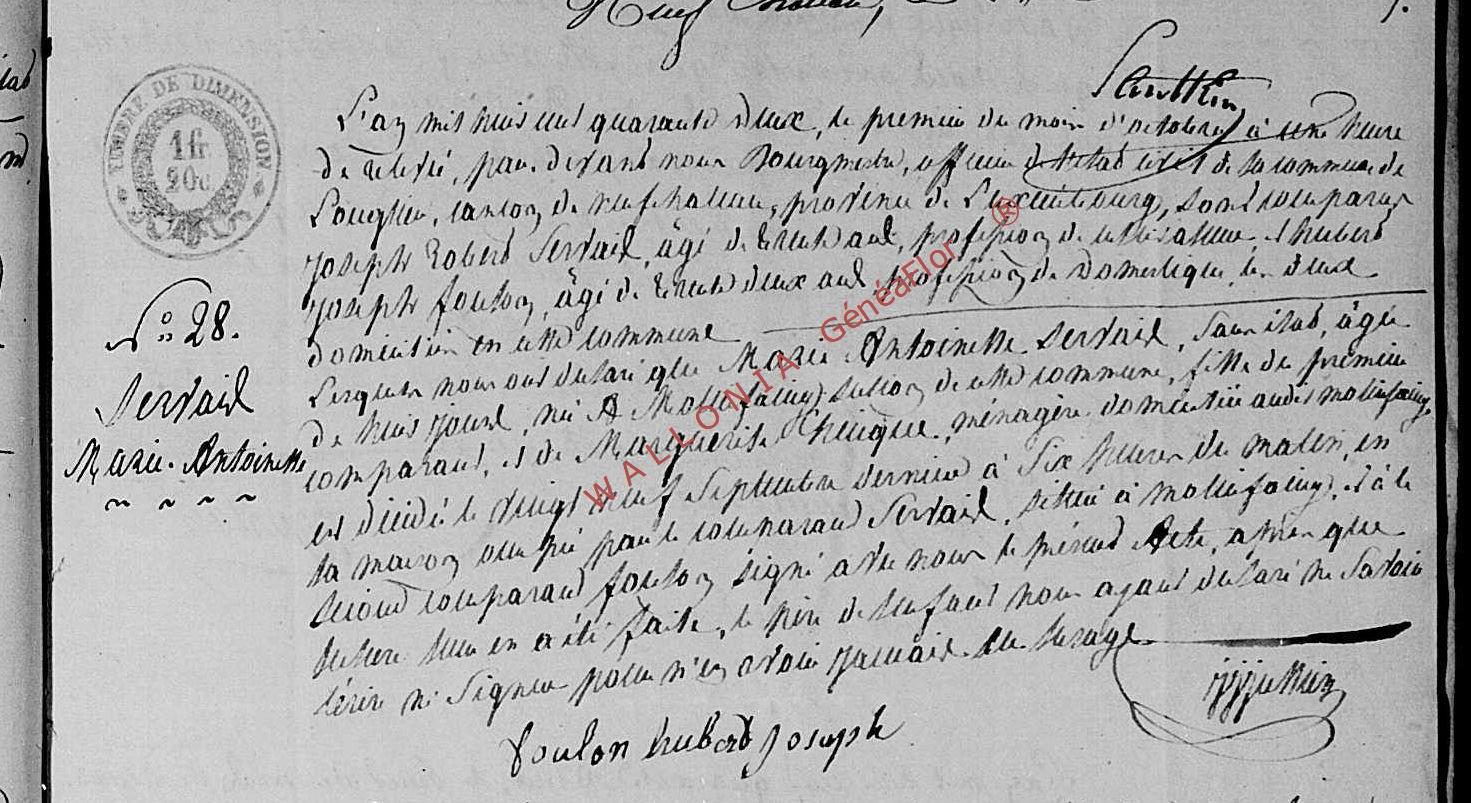 TIMBRE DE DIMENSION
1 fr.
20c
L'an mil huit cent quarante deux, le premier du mois d'octobre, à une heure
de relevé, par devant nous Bourgmestre, officier de l'état civil de la commune de
Longlier, canton de neufchateau, province de Luxembourg, sont comparus
Joseph Robert Servais, âgé de trente ans, profession de cultivateur, et hubert
Joseph foulon, âgé de trente deux ans, profession de domestique, les deux
domiciliés en cette commune
Lesquels nous ont déclaré que Marie Antoinette Servais, sans état, âgée
de huit jours, née à Mollefaing, section de cette commune, fille du premier
comparant, et de Marguerite, ménagère domiciliée audit mollefaing,
est décédé le vingt neuf Septembre dernier à Six heures du matin, en
la maison occupée par le comparant Servais, située à mollefaing, et à le
second comparant foulon signé avec nous le présent Acte, après que
lecture leur en a été faite, le père de l'enfant nous ayant déclaré ne savoir
écrire ni Signer pour n'en avoir jamais eu l'usage
N° 28.
Servais
Marie-Antoinette
foulon hubert Joseph
WALLONIA GénéaFlor ®